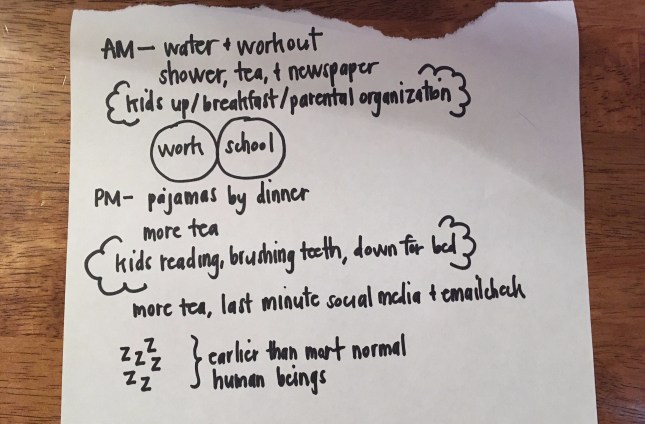 AM— water + workout
shower, tea, + newspaper
kids up/breakfast/parental organization
work school
PM— pajamas by dinner
more tea
kids reading, brushing teeth, down for bed
more tea, last minute social media + email check
zzz zz zz } earlier than most normal
human beings